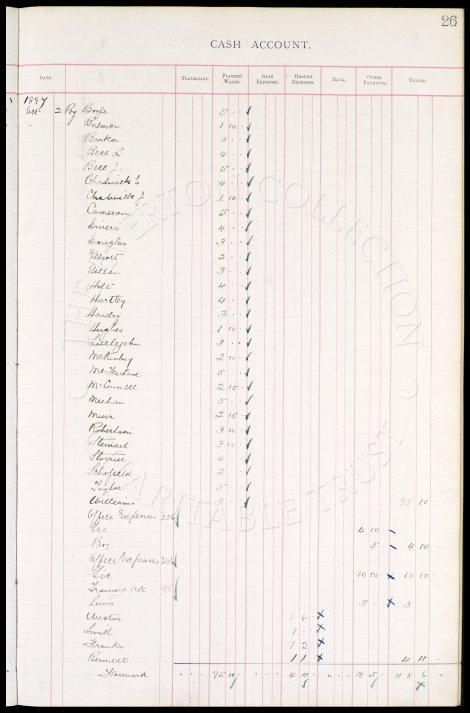 26
CASH ACCOUNT.
DATE. TRAVELLING. PLAYERS' WAGES. GATE EXPENSES. GROUND EXPENSES. BANK. OTHER PAYMENTS. TOTALS.
1897
2 By Boyle 5
Balmer 1 10
Barker 3
Bell L 4
Bell J. 5
Chadwick E 4
Chadwick 1 10
Cameron 5
Divers 4
Douglas 3
Elliott 2
Gillan 3
Holt 4
Hartley 4
Hendry 3
Hughes 1 10
Littlejohn 3
McKinley 2 10
McFarlane 5
McConnell 2 15
Meehan 5
Muir 2 15
Robertson 3 10
Steward 3 10
Storrier 4
Schofield 2
Taylor 5
Williams 3 95 10
Office Expenses 256
4 10
Boy 5 4 15
Office Expenses
10 10 10 10
Training a/c 95
Lewis 3 3
Weston 1 8
Smith 1
Franks 1 2
Bennett 1 1 4 11
Forward 95 10 4 11 18 5 118 6
THE EVERTON COLLECTION
CHARITABLE TRUST